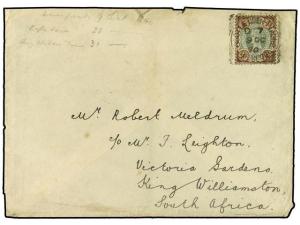 Mr Robert Meldrum,
c/o Mr J. Leighton,
Victoria Gardens
King Williamston,
South Africa.